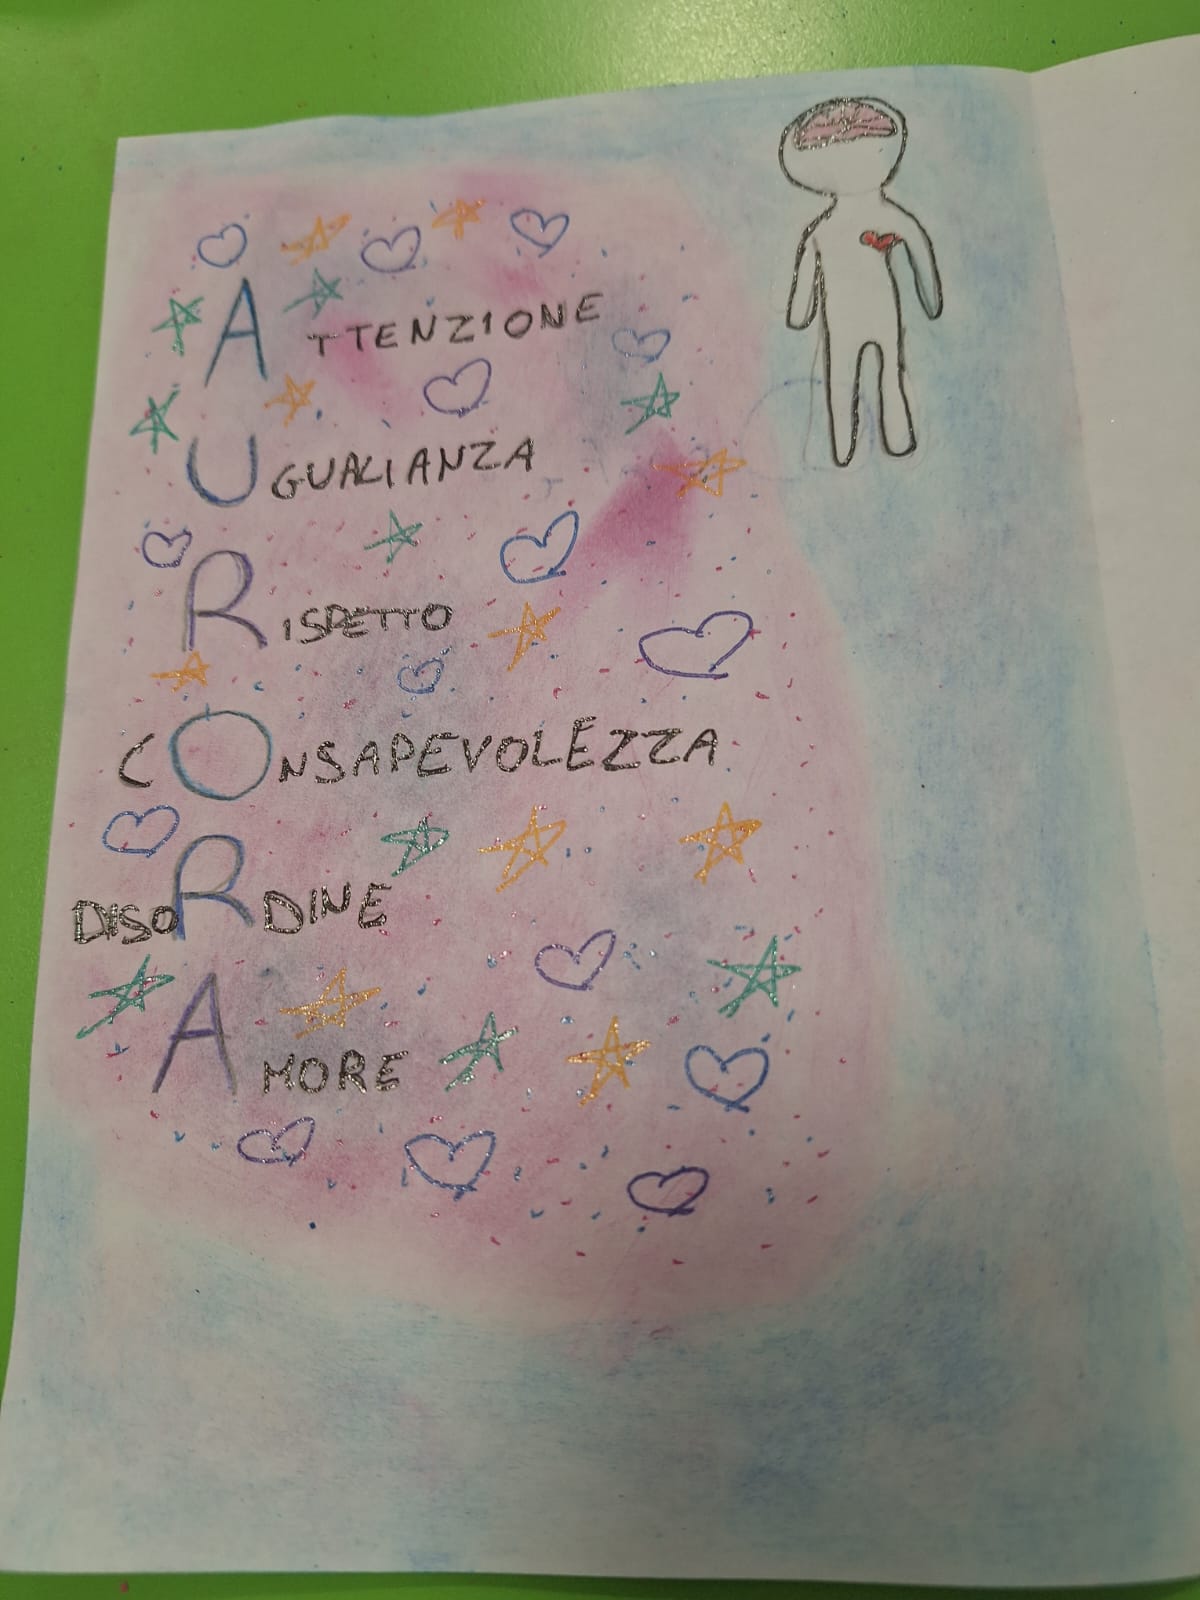 ATTENZIONE
UGUALIANZA
RISPETTO
CONSAPEVOLEZZA
DISORDINE
AMORE